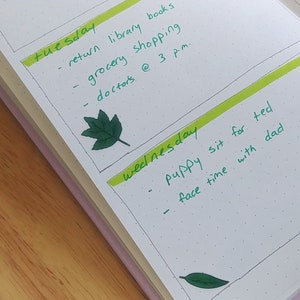 tuesday
- return library books
- grocery shopping
- doctors @ 3 pm
wednesday
- puppy sit for ted
- face time with dad